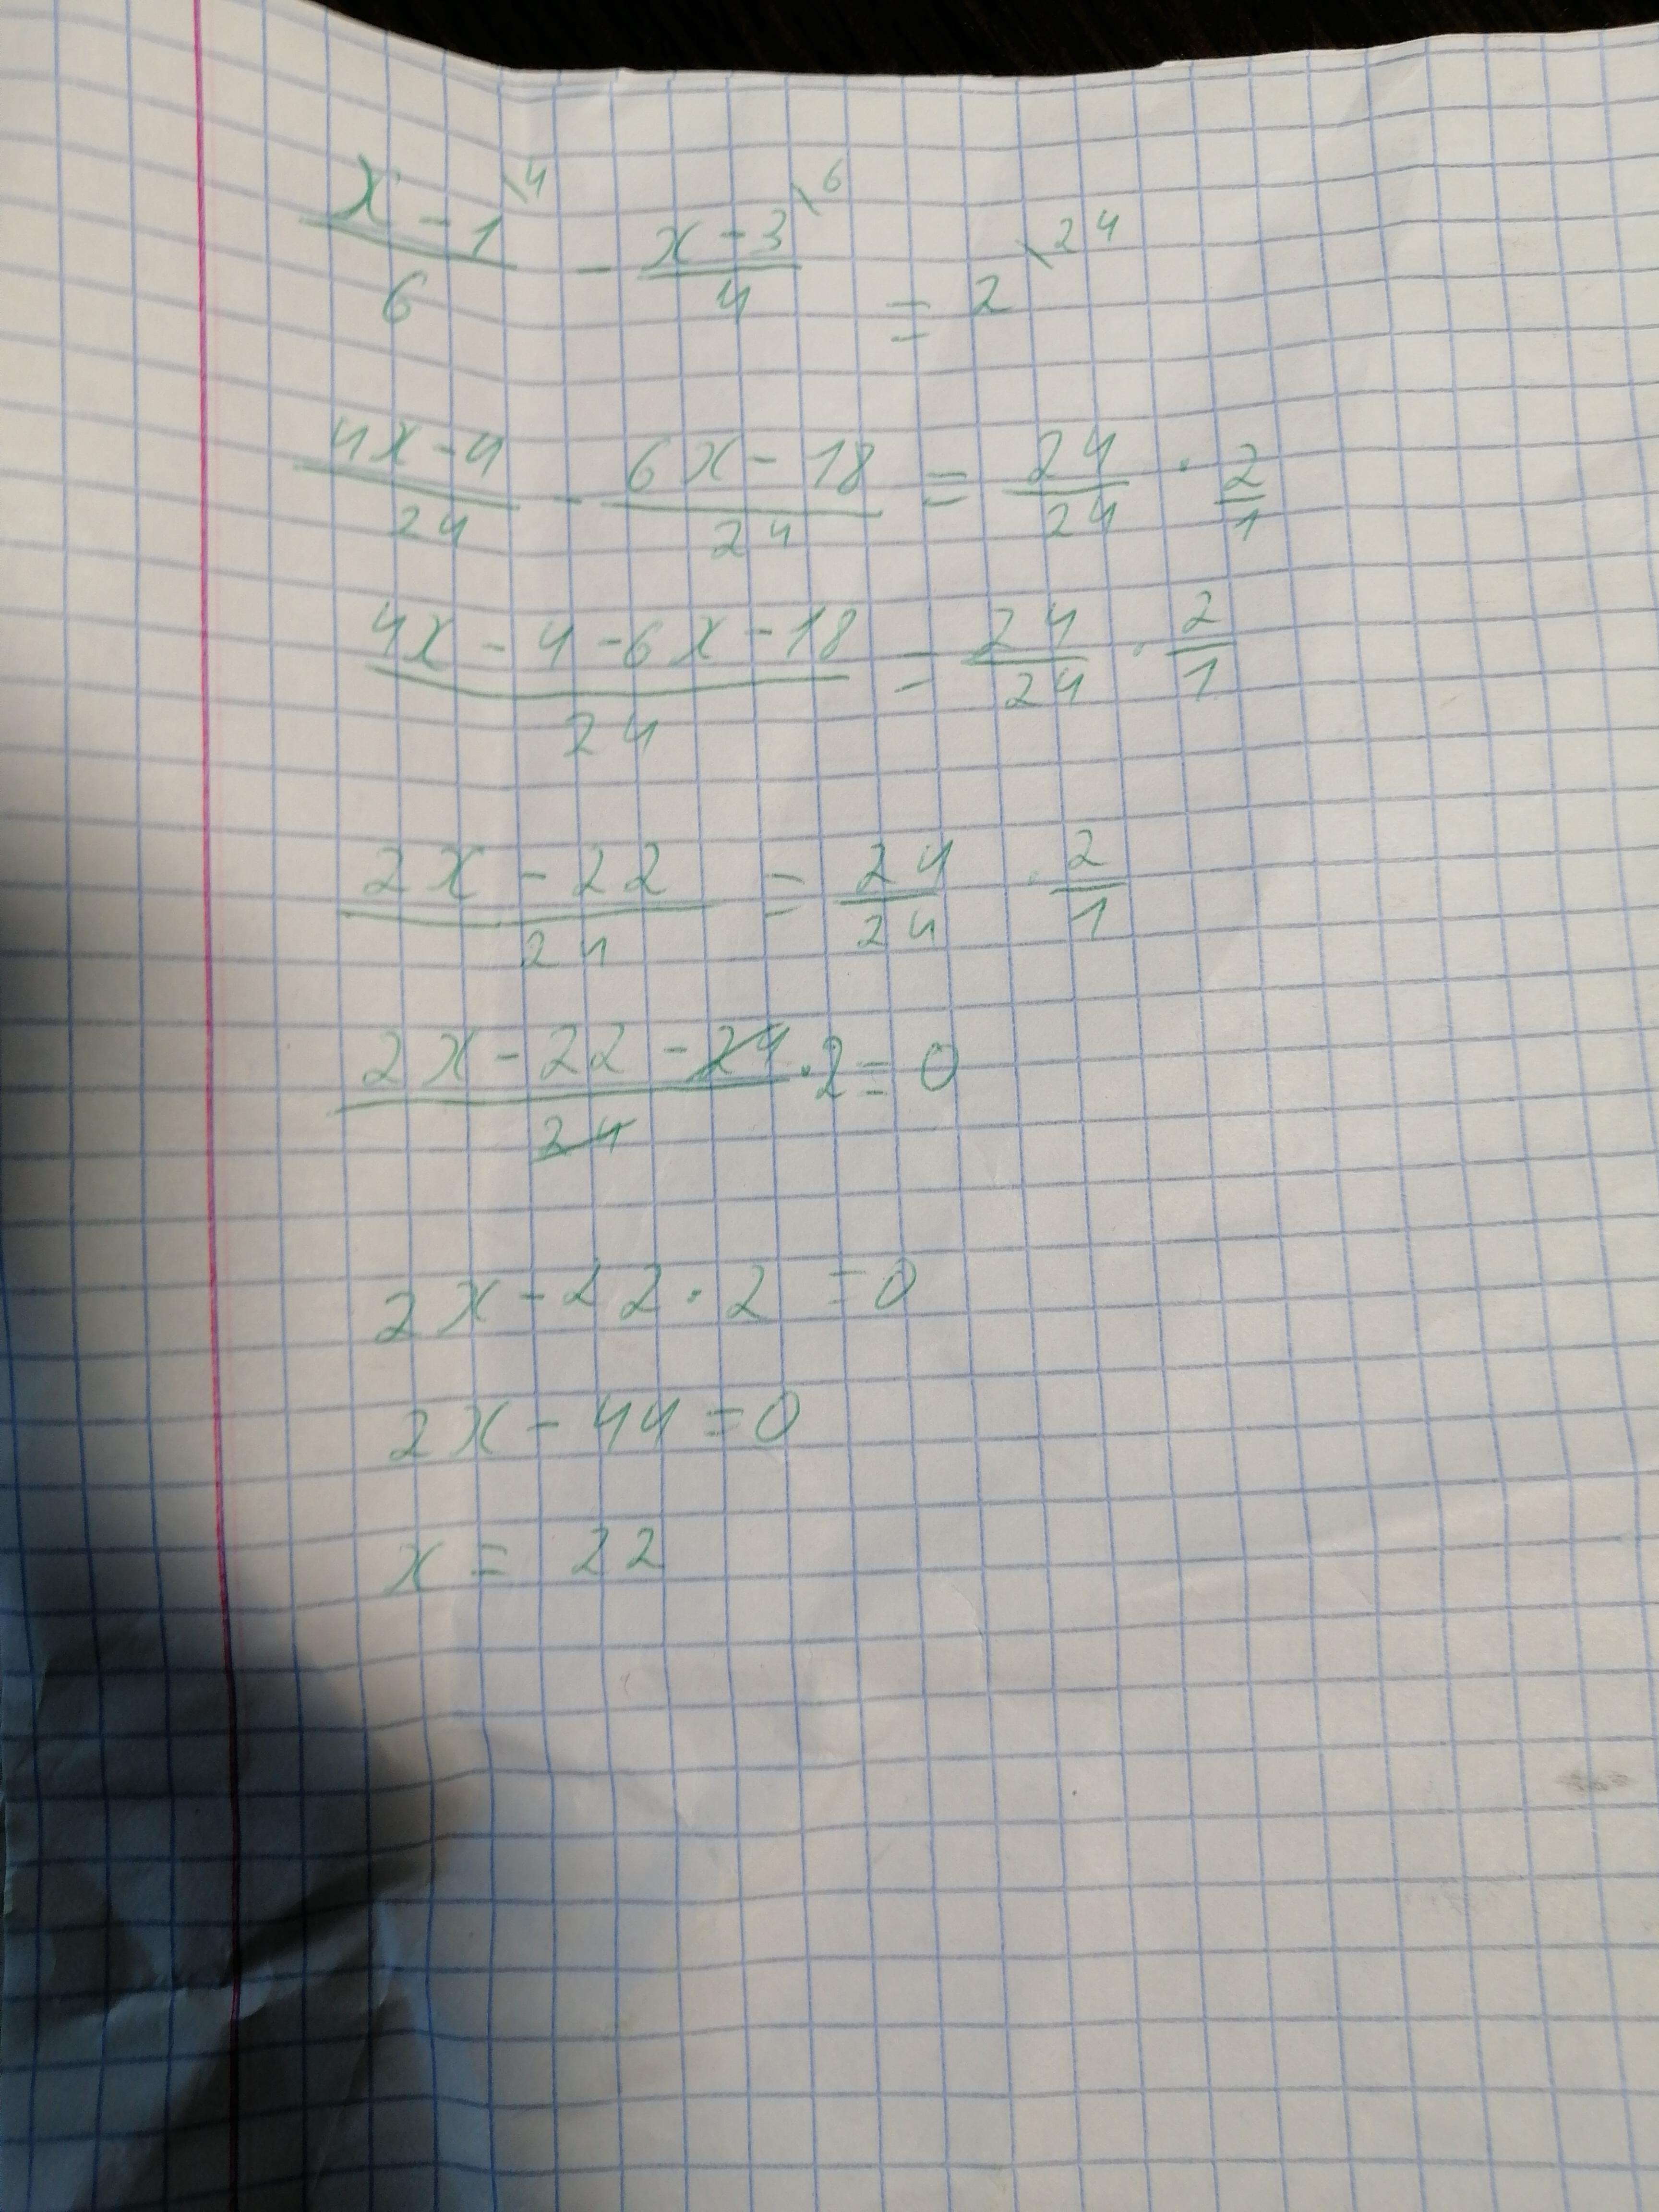 (x - 1)/6 \4 - (x - 3)/4 \6 = 2 \24
(4x - 4)/24 - (6x - 18)/24 = 24/24 · 2/1
(4x - 4 - 6x - 18)/24 = 24/24 · 2/1
(2x - 22)/24 = 24/24 · 2/1
(2x - 22 - 24)/24 · 2 = 0
2x - 22 · 2 = 0
2x - 44 = 0
x = 22